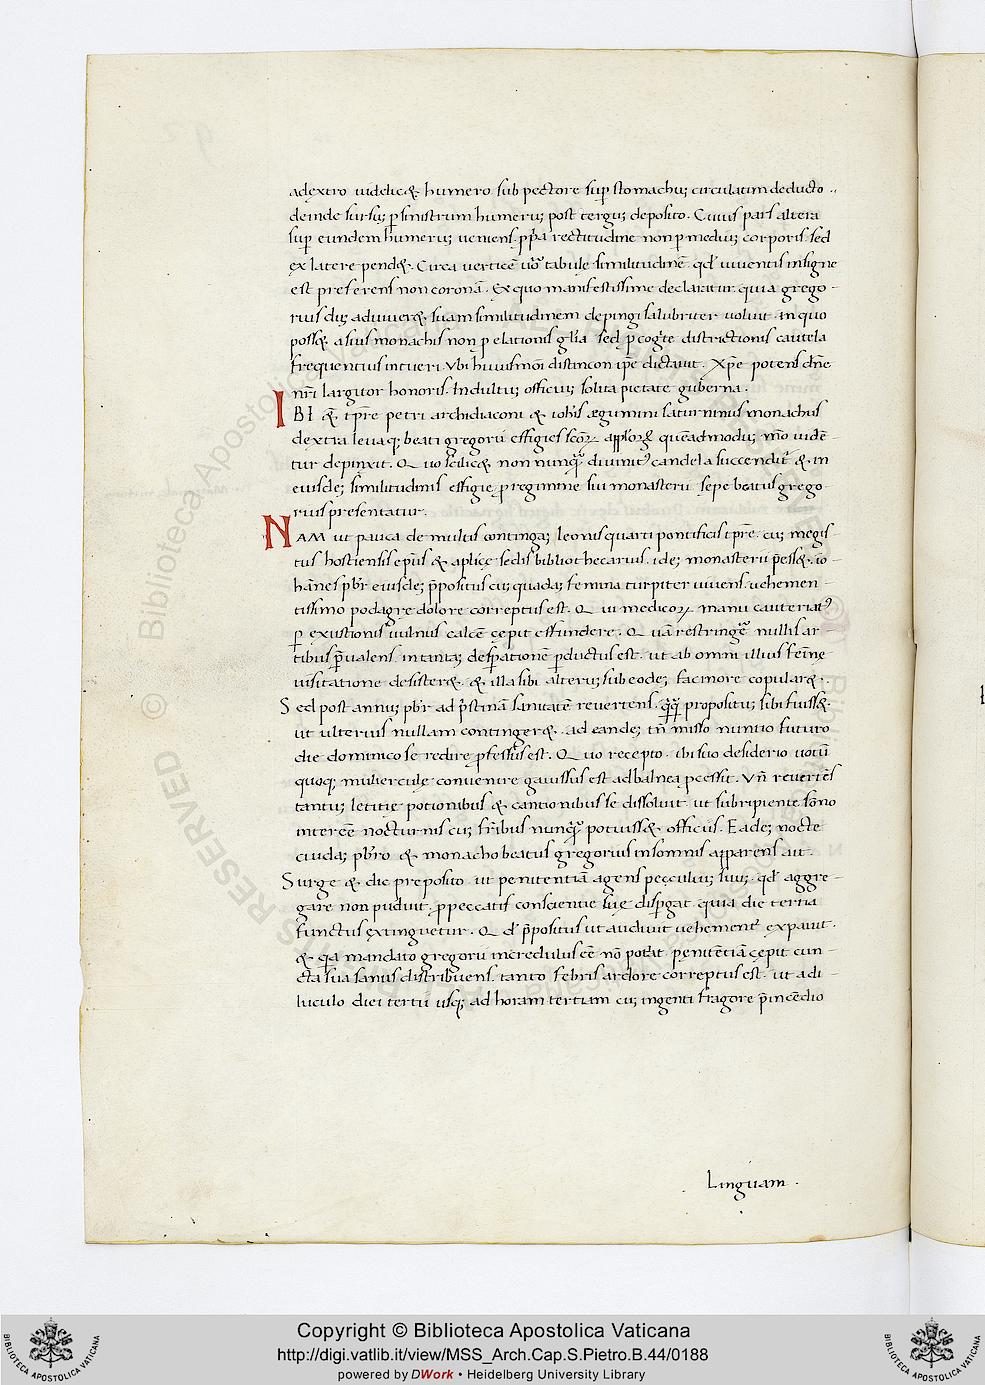 adextro uidelic& humero sub pectore sup̲ stomachuȝ circulatim deducto ..
deinde sursuȝ p̲ sinistrum humeruȝ post terguȝ deposito. Cuius pars altera
sup̲ eundem humeruȝ ueniens. p̲p̄a rectitudine non p̲ mediuȝ corporis. sed
ex latere pend&. Circa verticē uō tabule similitudinē qđ uiuentis insigne
est preferens non coronā. Ex quo manifestissime declaratur. quia grego-
rius duȝ adviuer& suam similitudinem depingi salubriter uoluit. in quo
poss& a suis monachis non p̲ elationis gl̄ia sed p̲ coḡte districtionis cautela
frequentius intueri. Vbi huiusmōi distincon ip̄e dictauit. Xp̄e potens dn̄e
nr̄i largitor honoris. Indultuȝ officiuȝ solita pietate guberna.
IBI & tp̄re petri archidiaconi & ioh̄is ęgumini saturninus monachus
dextra leuaqȝ beati gregorii effigies sc̄oꝝ applōꝝ quēadmoduȝ mō uidē-
tur depinxit. Quo scilic& non nunqȝ diuinitꝰ candela succendit̄ & in
eiusdeȝ similitudinis effigie p̲ regimine sui monasterii sepe beatus grego-
rius presentatur.
NAM ut pauca de multis contingaȝ leonis quarti pontificis tp̄re. cuȝ megis-
tus hostiensis ep̄us & aplicę sedis bibliothecarius. ideȝ monasterii p̄ess&. io-
hānes pb̄r eiusdeȝ p̄positus cuȝ quadaȝ femina turpiter uiuens. uehemen-
tissimo podagre dolore correptus est. Qui medicoꝝ manu cauteriatꝰ
p̲ exustionis uulnus calcē cępit effundere. Quā restringē nullis ar-
tibus p̄ualens. in tantaȝ desp̲ationē p̲ductus est. ut ab omni illius fēinę
uisitatione desister&. & illa sibi alteruȝ sub eodeȝ facinore copular&.
Sed post annuȝ pb̄r ad p̄stinā sanitatē revertens. qȝqȝ propositum sibi fuiss&.
ut ulterius nullam continger&. ad eandeȝ tn̄ misso nuntio futuro
die dominico se redire p̲fessus est. Quo recepto. ibi suo desiderio uotū
quoqȝ mulierculę convenire gauissus est ad balnea p̲cessit. Vn̄ revertēs
tantuȝ letitię potionibus & cantionibus se dissoluit. ut subripiente sōno
interēe nocturnis cuȝ fr̄ibus nunqȝ potuiss& officiis. Eadeȝ nocte
cuidaȝ pb̄ro & monacho beatus gregorius in somnis apparens ait.
Surge & dic preposito. ut penitentiā agens pęculiuȝ suuȝ. qđ aggre-
gare non puduit. p̲ peccatis conscientie suę disp̲gat. quia die tertia
functus extinguetur. Qđ p̄positus ut audiuit uehement̄ expauit.
& qa mandato gregorii incredulus ēe nō potuit. penitētiā cępit cun-
cta sua sanus distribuens. tanto febris ardore correptus est. ut a di-
luculo diei tertii usqȝ ad horam tertiam cuȝ ingenti fragore p̄ incēdio
Linguam .
Copyright © Biblioteca Apostolica Vaticana
http://digi.vatlib.it/view/MSS_Arch.Cap.S.Pietro.B.44/0188
powered by DWork • Heidelberg University Library